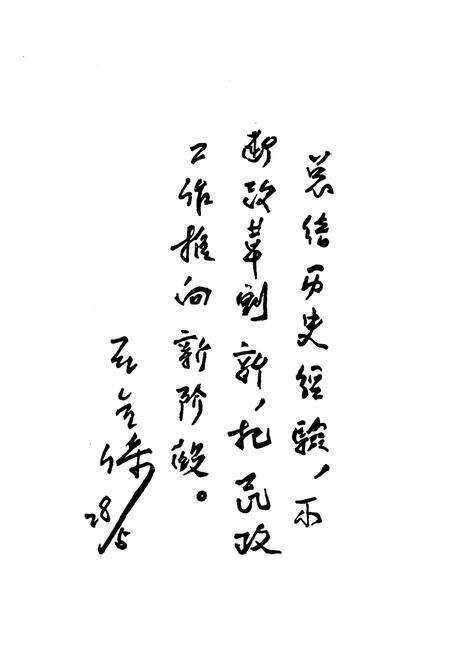 总结历史经验，不
断改革创新，把民政
工作推向新阶段。
28/5